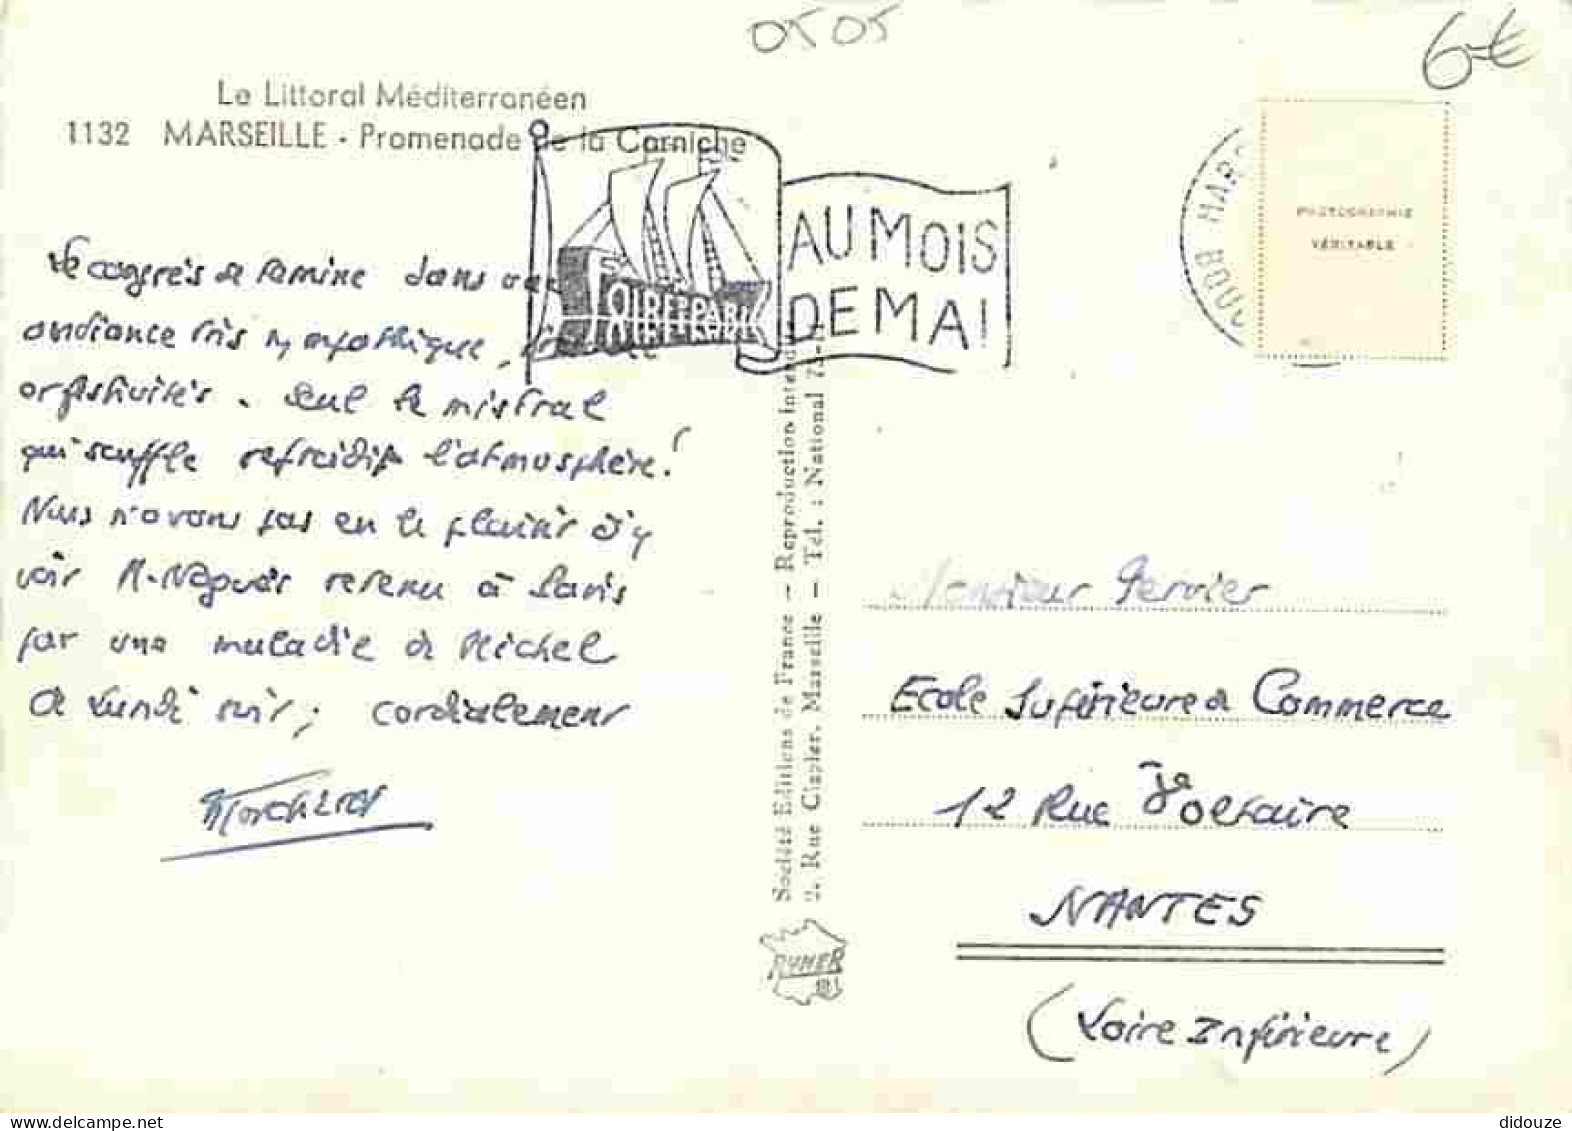 0505
6-€
Le Littoral Méditerranéen
1132 MARSEILLE - Promenade de la Corniche
FOIRE DE PARIS
AU MOIS
DE MAI
MARS
BOU
PHOTOGRAPHIE
VÉRITABLE
Le congrès se termine dans une
ambiance très sympathique,
et festivités. Seul le mistral
qui souffle refroidit l'atmosphère!
Nous n'avons pas eu le plaisir d'y
voir M. retenu à Paris
par une maladie de Michel
A Lundi soir; cordialement
Société Editions de France - Reproduction interdite
2, Rue Cispler, Marseille - Tél. : National 73-11
RYNER
Monsieur Pervier
Ecole Supérieure de Commerce
12 Rue Voltaire
NANTES
(Loire Inférieure)
didouze